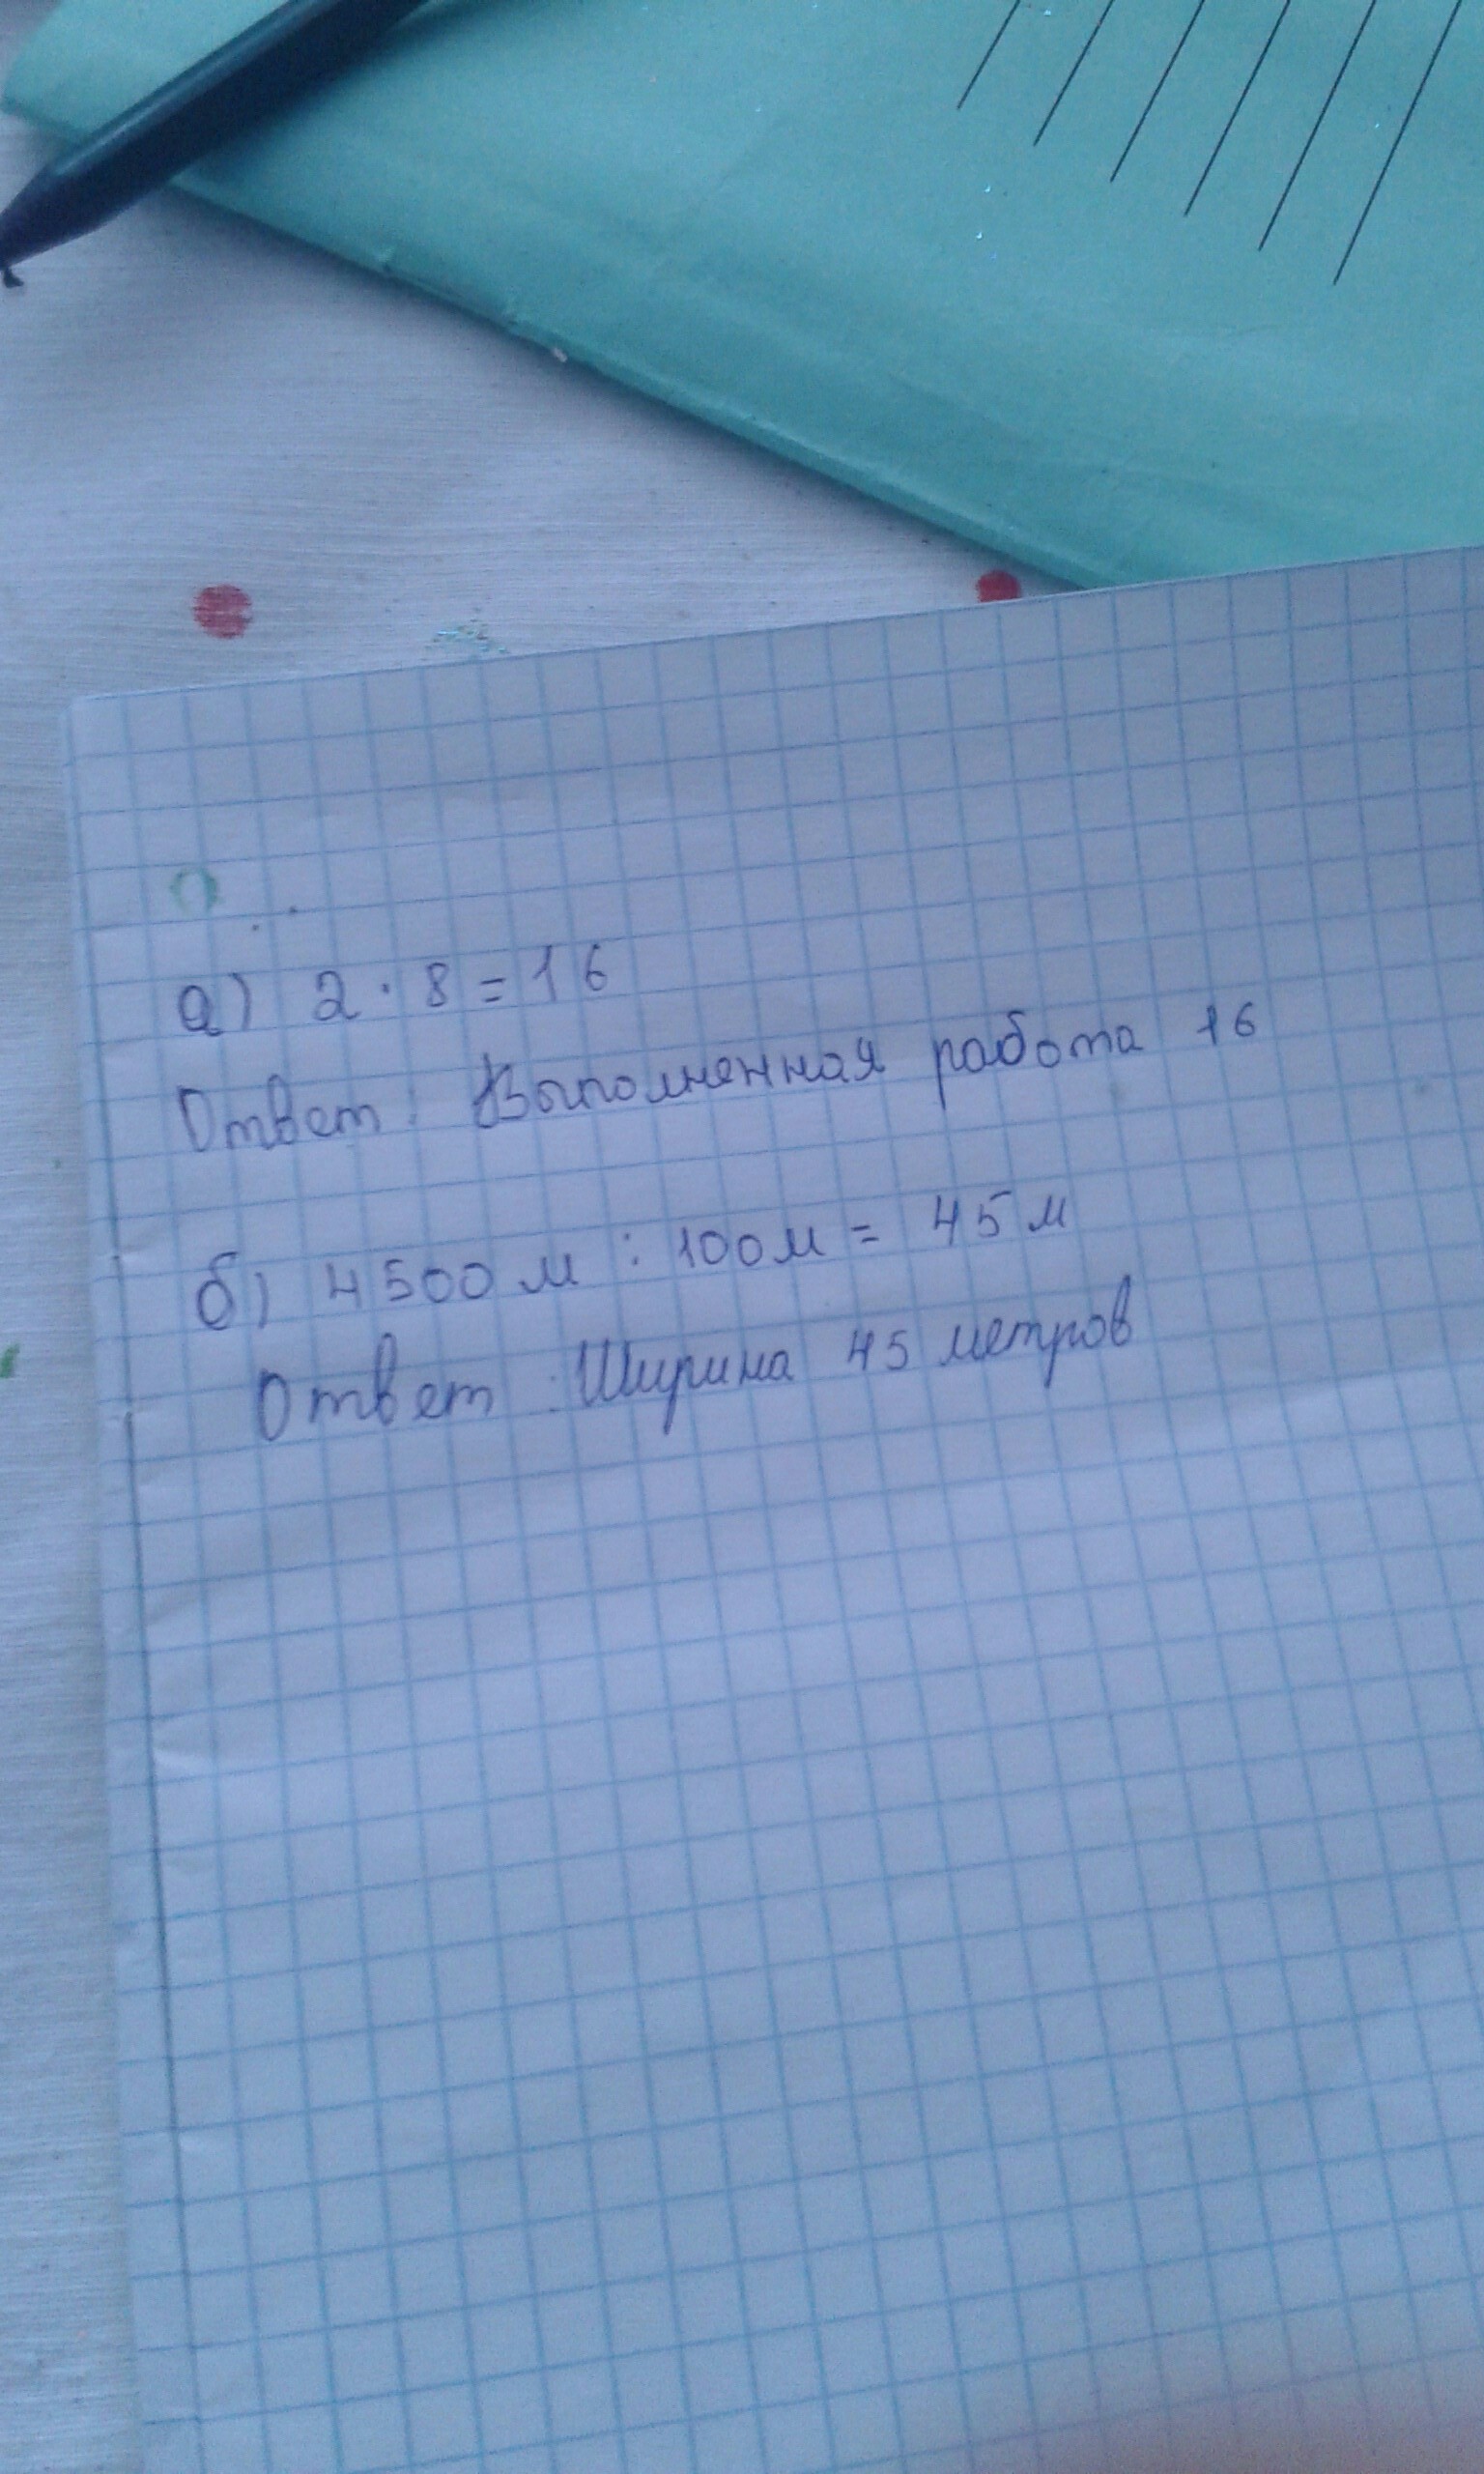 а) 2 · 8 = 16
Ответ: Выполненная работа 16
б) 4500 м : 100м = 45 м
Ответ : Ширина 45 метров